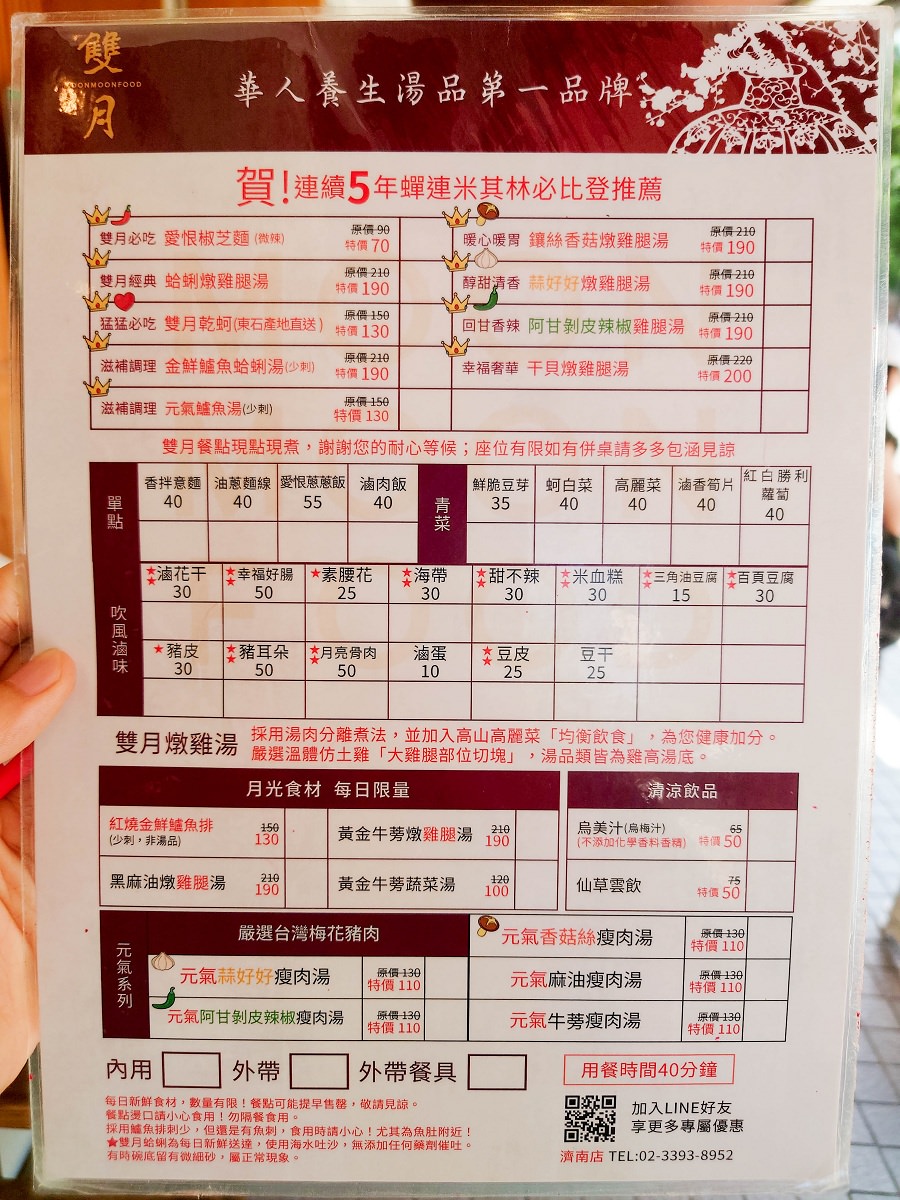 雙月
MOONMOONFOOD
華人養生湯品第一品牌
賀!連續5年蟬連米其林必比登推薦
雙月必吃 愛恨椒芝麵 (微辣) 原價 90 特價 70
暖心暖胃 鑲絲香菇燉雞腿湯 原價 210 特價 190
雙月經典 蛤蜊燉雞腿湯 原價 210 特價 190
醇甜清香 蒜好好燉雞腿湯 原價 210 特價 190
猛猛必吃 雙月乾蚵(東石產地直送) 原價 150 特價 130
回甘香辣 阿甘剝皮辣椒雞腿湯 原價 210 特價 190
滋補調理 金鮮鱸魚蛤蜊湯(少刺) 原價 210 特價 190
幸福奢華 干貝燉雞腿湯 原價 220 特價 200
滋補調理 元氣鱸魚湯(少刺) 原價 150 特價 130
雙月餐點現點現煮，謝謝您的耐心等候；座位有限如有併桌請多多包涵見諒
單點
香拌意麵 40
油蔥麵線 40
愛恨蔥蔥飯 55
滷肉飯 40
青菜
鮮脆豆芽 35
蚵白菜 40
高麗菜 40
滷香筍片 40
紅白勝利蘿蔔 40
吹風滷味
★★滷花干 30
★★幸福好腸 50
★素腰花 25
★★海帶 30
★★甜不辣 30
★★米血糕 30
★★三角油豆腐 15
★★百頁豆腐 30
★豬皮 30
★★豬耳朵 50
★★月亮骨肉 50
滷蛋 10
★★豆皮 25
豆干 25
雙月燉雞湯
採用湯肉分離煮法，並加入高山高麗菜「均衡飲食」，為您健康加分。
嚴選溫體仿土雞「大雞腿部位切塊」，湯品類皆為雞高湯底。
月光食材 每日限量
紅燒金鮮鱸魚排 (少刺，非湯品) 150 130
黃金牛蒡燉雞腿湯 210 190
黑麻油燉雞腿湯 210 190
黃金牛蒡蔬菜湯 120 100
清涼飲品
烏美汁(烏梅汁) 65
(不添加化學香料香精) 特價 50
仙草雲飲 75 特價 50
元氣系列
嚴選台灣梅花豬肉
元氣香菇絲瘦肉湯 原價 130 特價 110
元氣蒜好好瘦肉湯 原價 130 特價 110
元氣麻油瘦肉湯 原價 130 特價 110
元氣阿甘剝皮辣椒瘦肉湯 原價 130 特價 110
元氣牛蒡瘦肉湯 原價 130 特價 110
內用 外帶 外帶餐具
用餐時間40分鐘
每日新鮮食材，數量有限！餐點可能提早售罄，敬請見諒。
餐點燙口請小心食用！勿隔餐食用。
採用鱸魚排刺少，但還是有魚刺，食用時請小心！尤其為魚肚附近！
★雙月蛤蜊為每日新鮮送達，使用海水吐沙，無添加任何藥劑催吐。
有時碗底留有微細砂，屬正常現象。
加入LINE好友
享更多專屬優惠
濟南店 TEL:02-3393-8952